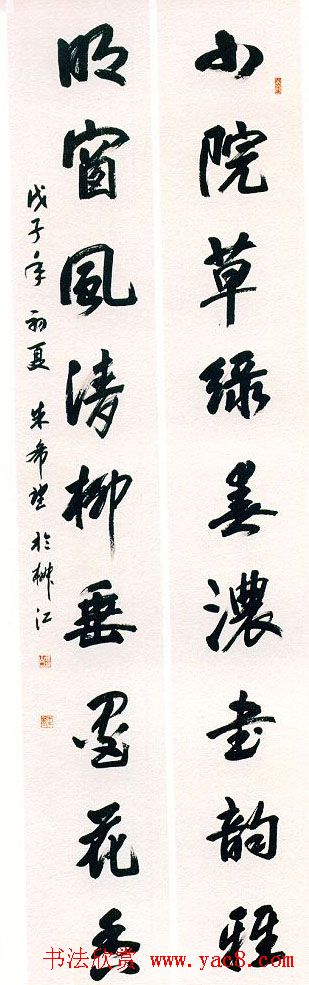 小院草緑春濃書韵雅
明窗風清柳垂墨花香
戊子年初夏 朱希 於 江
书法欣赏 www.yac8.com